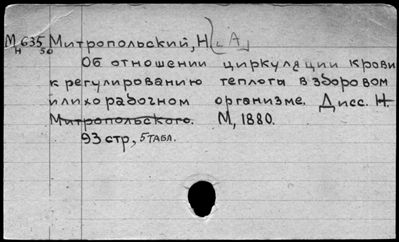 М 635 Митропольский, Н. [А.]
Н 50
Об отношении циркуляции крови
к регулированию теплота в здоровом
и лихорадочном организме. Дисс. Н.
Митропольского. М, 1880.
93 стр, 5 табл.